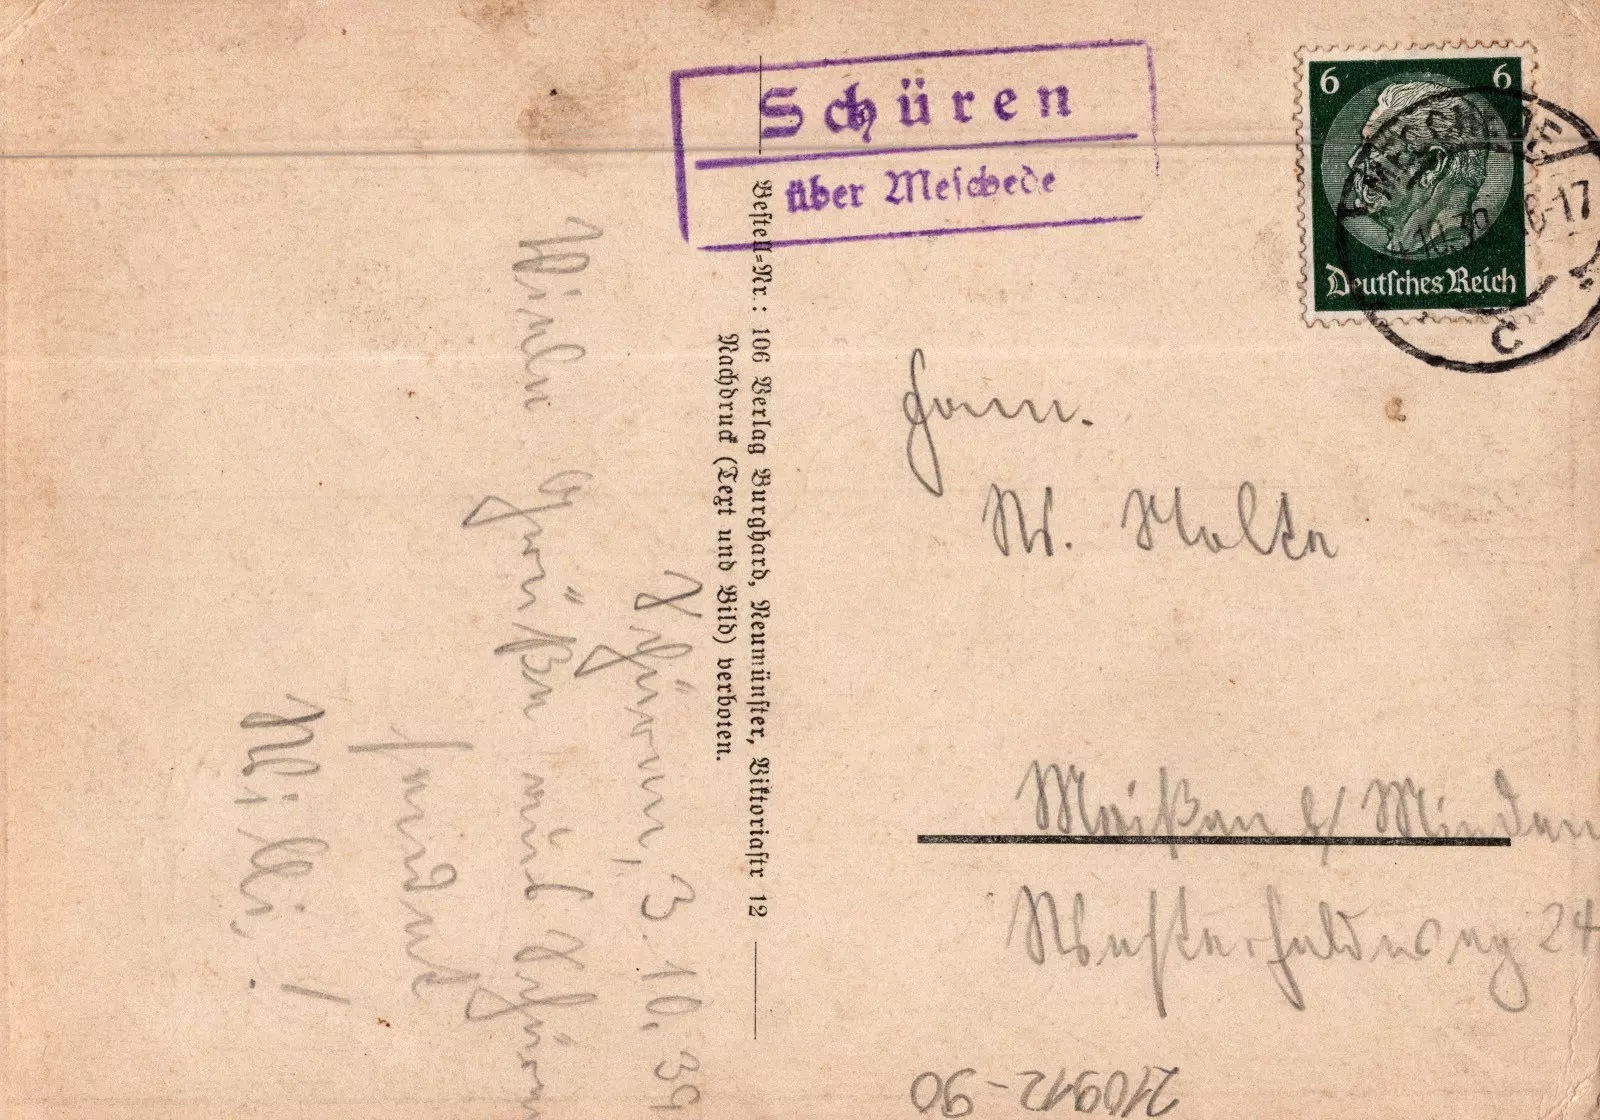 Schüren
über Meschede
6 6
Deutsches Reich
MESCHEDE
10.39 16-17
c
Bestell=Nr.: 106 Verlag Burghard, Neumünster, Viktoriastr 12
Nachdruck (Text und Bild) verboten.
Schüren, 3.10.39
Viele Grüße aus Schüren
sendet
Willi.!
W. Nolte
Meißen b/ Minden
Westerfeldweg 24
210912-90